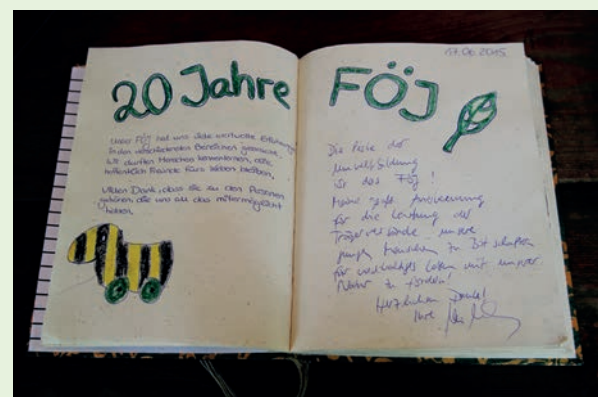 20 Jahre
Unser FÖJ hat uns viele wertvolle Erfahrungen
in den verschiedensten Bereichen gebracht.
Wir durften Menschen kennenlernen, die
hoffentlich Freunde fürs Leben bleiben.
Vielen Dank, dass Sie zu den Personen
gehören die uns all das mitermöglicht
haben.
17.06.2015
FÖJ
Die Perle der
Umweltbildung
ist das FÖJ!
Meine große Anerkennung
für die Leistung der
Trägerverbände unsere
jungen Menschen zu Botschaftern
für nachhaltiges Leben mit unserer
Natur zu fördern!
Herzlichen Dank!
Ihre